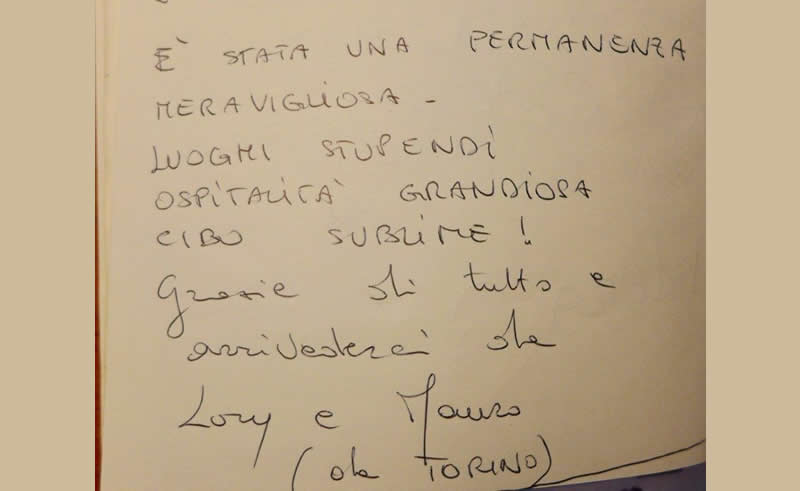 È STATA UNA PERMANENZA
MERAVIGLIOSA -
LUOGHI STUPENDI
OSPITALITA' GRANDIOSA
CIBO SUBLIME!
Grazie di tutto e
arrivederci da
Lory e Mauro
(da TORINO)